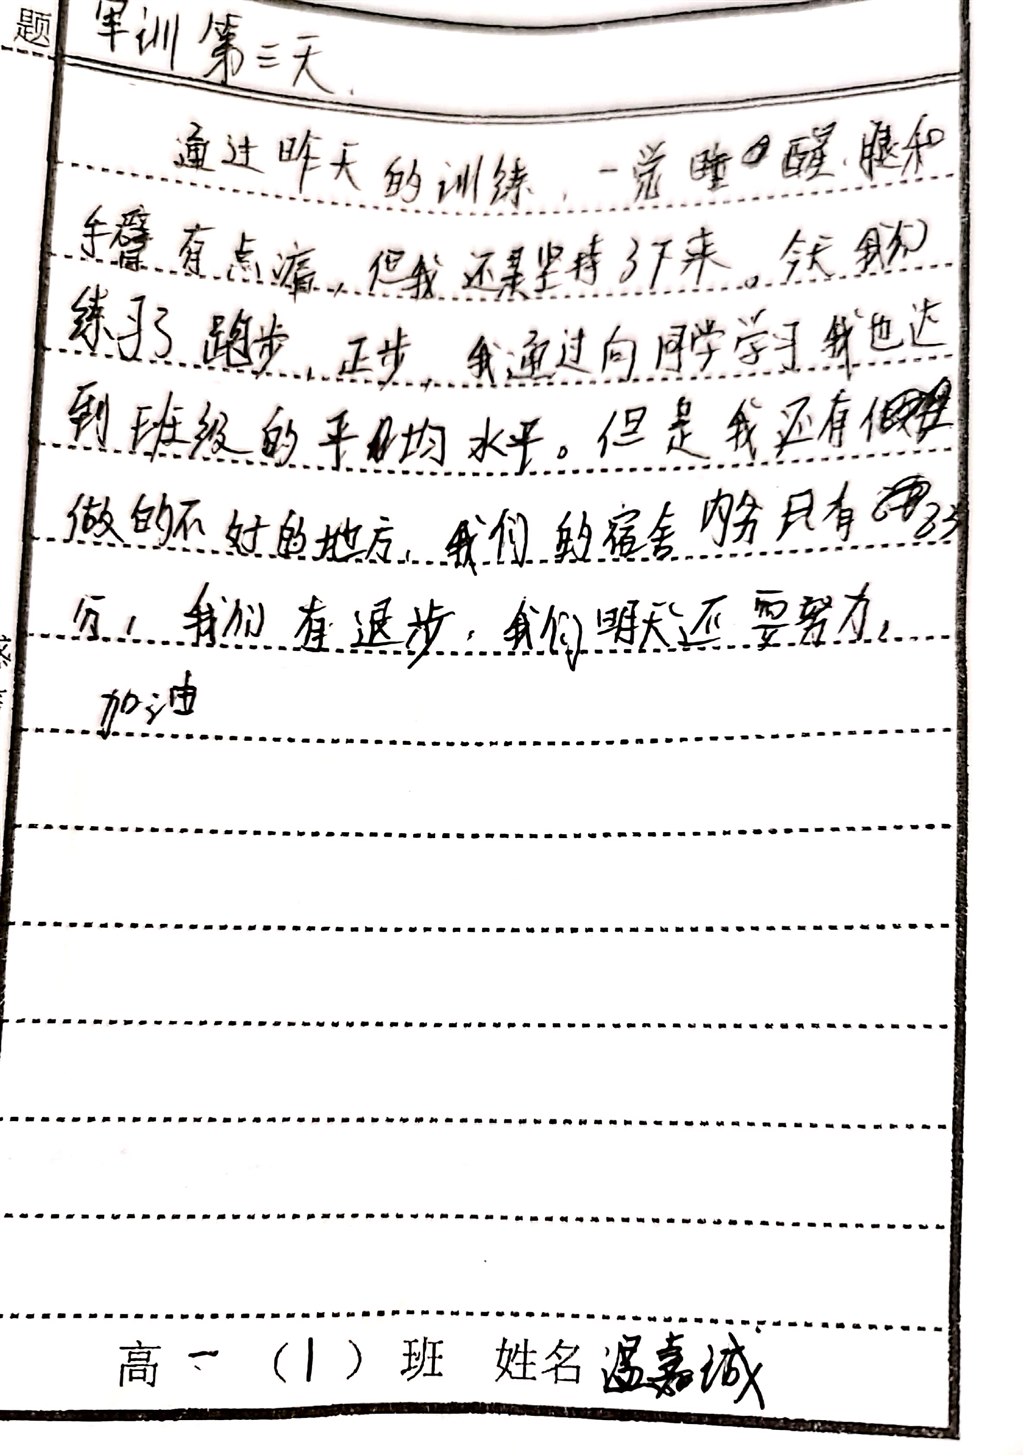 题 军训第三天.
通过昨天的训练，一觉睡醒，腿和
手臂有点痛，但我还是坚持了下来。今天我们
练习了跑步，正步，我通过向同学学习我也达
到班级的平均水平。但是我还有
做的不好的地方，我们的宿舍内务只有 23
分，我们有退步，我们明天还要努力，
加油
高一（1）班 姓名 温嘉诚